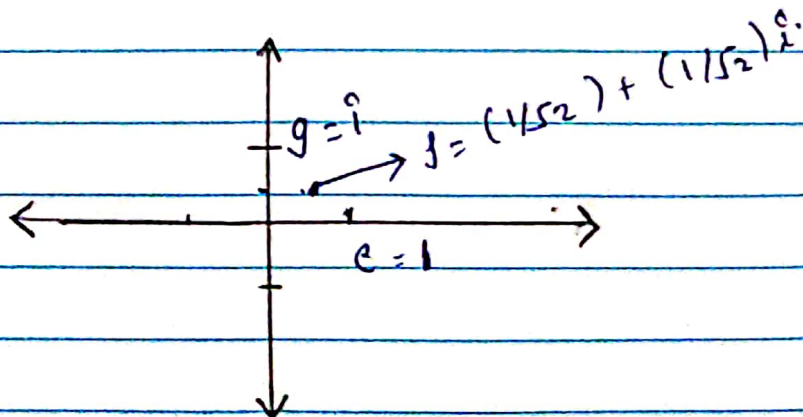 g = i
f = (1/√2) + (1/√2)i
e = 1